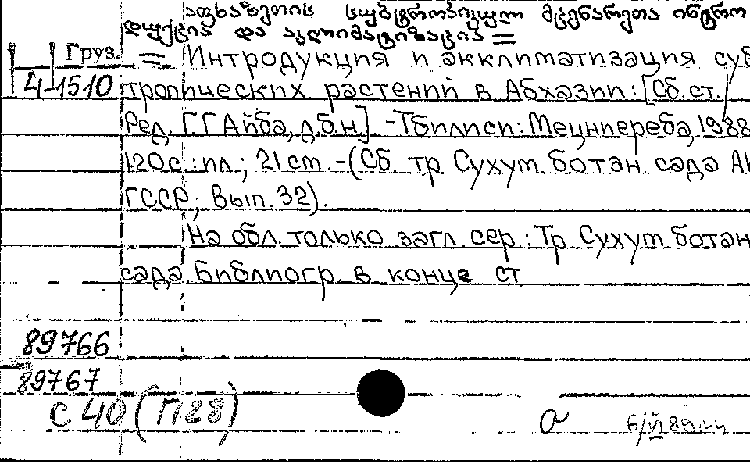 აფხაზეთის სუბტროპიკულ მცენარეთა ინტრო
დუქცია და აკლიმატიზაცია =
Груз. = Интродукция и акклиматизация суб
4-1510 тропических растений в Абхазии: [Сб. ст.
Ред. Г.Г Айба, д.б.н.] -Тбилиси: Мецниереба, 1988
120с.: ил.; 21 см -(Сб. тр. Сухум. ботан сада АН
ГССР; Вып. 32).
На обл. только загл. сер.: Тр. Сухум. ботан
сада Библиогр. в конце ст
89766
89767
С 40 (П28)
а